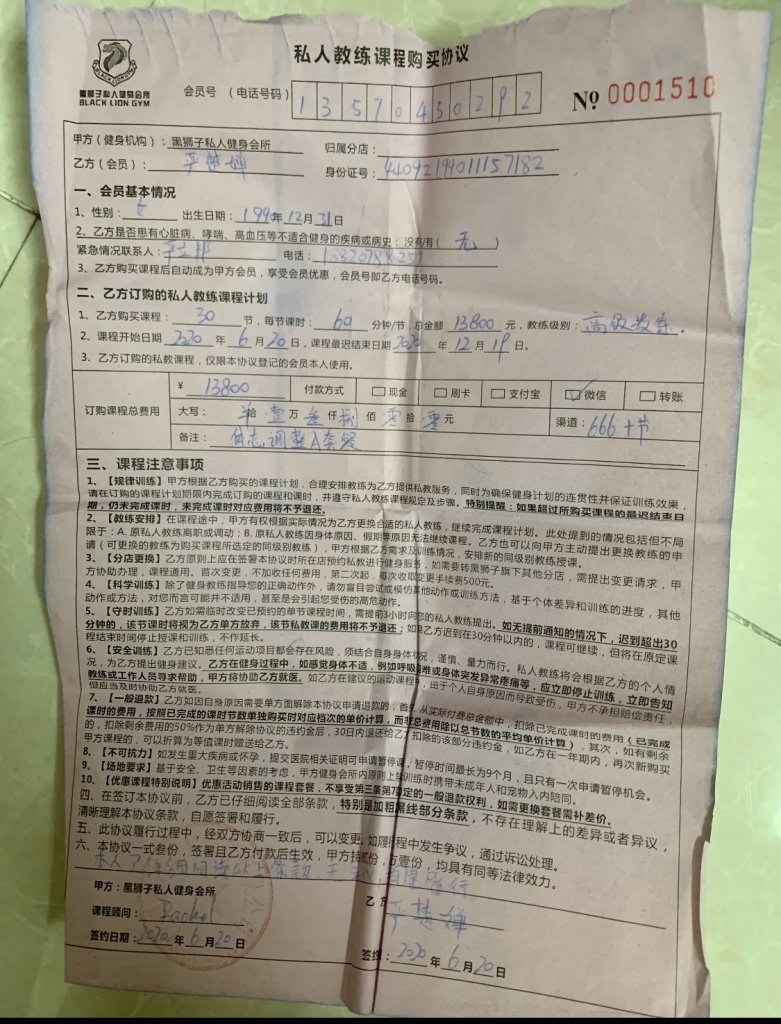 私人教练课程购买协议
黑狮子私人健身会所
BLACK LION GYM
会员号 （电话号码） 13570450292
№ 0001510
甲方（健身机构）：黑狮子私人健身会所 归属分店：
乙方（会员）： 身份证号：
一、会员基本情况
1、性别：女 出生日期：199年12月31日
2、乙方是否患有心脏病、哮喘、高血压等不适合健身的疾病或病史：没有/有（无）
紧急情况联系人： 电话：
3、乙方购买课程后自动成为甲方会员，享受会员优惠，会员号即乙方电话号码。
二、乙方订购的私人教练课程计划
1、乙方购买课程：30 节，每节课时：60 分钟/节，总金额 13800 元，教练级别：高级教练。
2、课程开始日期 2020 年 6 月 20 日，课程最迟结束日期 2020 年 12 月 19 日。
3、乙方订购的私教课程，仅限本协议登记的会员本人使用。
订购课程总费用
¥ 13800 付款方式 现金 刷卡 支付宝 微信 转账
大写： 拾 壹 万 仟 捌 佰 零 拾 零 元 渠道：666+节
备注：体态调整A套餐
三、课程注意事项
1、【规律训练】甲方根据乙方购买的课程计划，合理安排教练为乙方提供私教服务，同时为确保健身计划的连贯性并保证训练效果，
请在订购的课程计划期限内完成订购的课程和课时，并遵守私人教练课程规定及步骤。特别提醒：如果超过所购买课程的最迟结束日
期，仍未完成课时，未完成课时对应费用将不予退还。
2、【教练安排】在课程途中，甲方有权根据实际情况为乙方更换合适的私人教练，继续完成课程计划。此处提到的情况包括但不局
限于：A. 原私人教练离职或调动；B. 原私人教练因身体原因、假期等原因无法继续课程。乙方也可以向甲方主动提出更换教练的申
请（可更换的教练为购买课程所选定的同级别教练），甲方根据乙方需求及训练情况，安排新的同级别教练授课。
3、【分店更换】乙方原则上应在签署本协议时所在店预约私教进行健身服务，如需要转黑狮子旗下其他分店，需提出变更请求，甲
方协助办理，课程通用。首次变更，不加收任何费用，第二次起，每次收取变更手续费500元。
4、【科学训练】除了健身教练指导您的正确动作外，请勿盲目尝试或模仿其他动作或训练方法，基于个体差异和训练的进度，其他
动作或方法，对您而言可能并不适用，甚至是会引起您受伤的高危动作。
5、【守时训练】乙方如需临时改变已预约的单节课程时间，需提前3小时向您的私人教练提出。如无提前通知的情况下，迟到超出30
分钟的，该节课时将视为乙方单方放弃，该节私教课的费用将不予退还；如果乙方迟到在30分钟以内的，课程可继续，但将在原定课
程结束时间停止授课和训练，不作延长。
6、【安全训练】乙方已知悉任何运动项目都会存在风险，须结合自身身体状况，谨慎、量力而行。私人教练将会根据乙方的个人情
况，为乙方提出健身建议。乙方在健身过程中，如感觉身体不适，例如呼吸困难或身体突发异常疼痛等，应立即停止训练，立即告知
教练或工作人员寻求帮助，甲方将协助乙方就医。如乙方在建议的运动课程中，由于个人自身原因而导致受伤，甲方不承担赔偿责任，
但应当及时协助乙方就医。
7、【一般退款】乙方如因自身原因需要单方面解除本协议申请退款的，首先，从实际付款总金额中，扣除已完成课时的费用（已完成
课时的费用，按照已完成的课时节数单独购买时对应档次的单价计算，而非总费用除以总节数的平均单价计算），其次，如有剩余
的，扣除剩余费用的50%作为单方解除协议的违约金后，30日内退还给乙方；扣除的该部分违约金，如乙方在一年期内，再次新购买
甲方课程的，可以折算为等值课时赠送给乙方。
8、【不可抗力】如发生重大疾病或怀孕，提交医院相关证明可申请暂停课，暂停时间最长为9个月，且只有一次申请暂停机会。
9、【场地要求】基于安全、卫生等因素的考虑，甲方健身会所内原则上上训练时携带未成年人和宠物入内陪同。
10、【优惠课程特别说明】优惠活动销售的课程套餐，不享受第三条第7款定的一般退款权利，如需更换套餐需补差价。
四、在签订本协议前，乙方已仔细阅读全部条款，特别是加粗黑线部分条款，不存在理解上的差异或者异议，
清晰理解本协议条款，自愿签署和履行。
五、此协议履行过程中，经双方协商一致后，可以变更。如履行程中发生争议，通过诉讼处理。
六、本协议一式叁份，签署且乙方付款后生效，甲方持贰份，方壹份，均具有同等法律效力。
甲方：黑狮子私人健身会所 乙方
课程顾问：Rachel
签约日期：2020 年 6 月 20 日 签约：2020 年 6 月 20 日